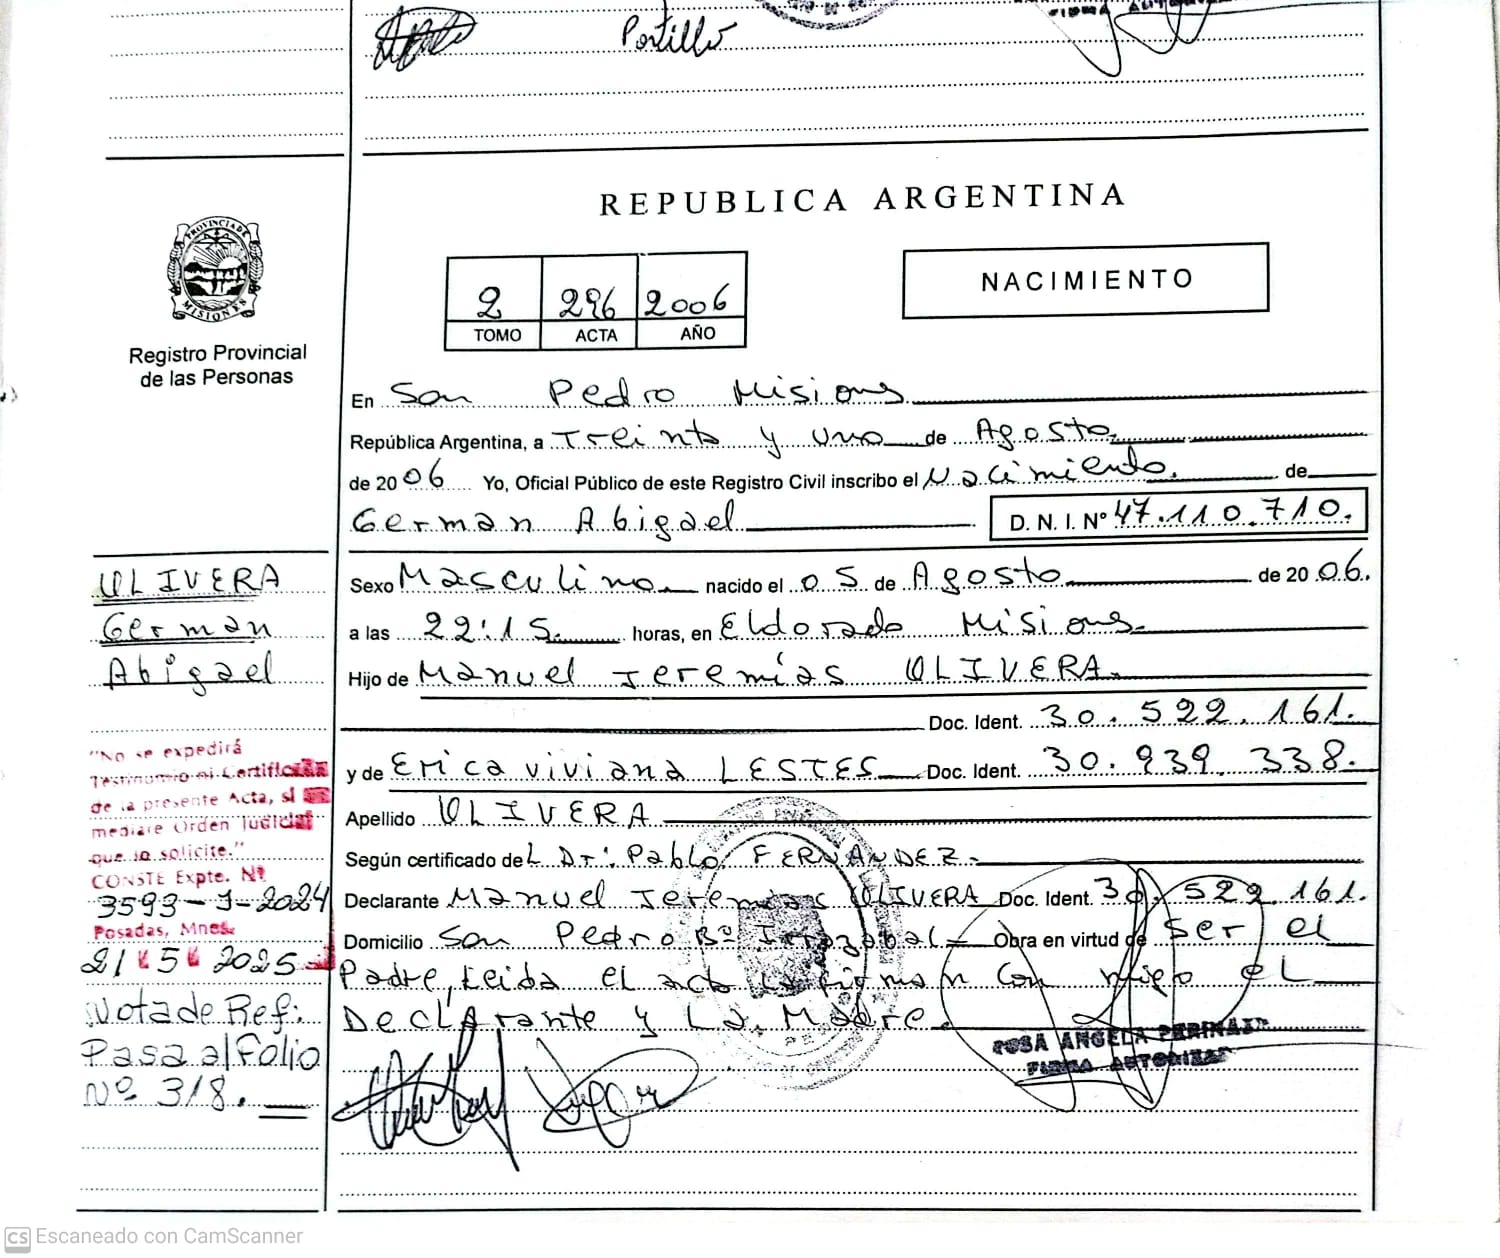 Portillo
FIRMA AUTORIZ
REPUBLICA ARGENTINA
PROVINCIA DE
MISIONES
Registro Provincial
de las Personas
2 296 2006
TOMO ACTA AÑO
NACIMIENTO
En San Pedro Misiones
República Argentina, a Treinta y uno de Agosto
de 2006 Yo, Oficial Público de este Registro Civil inscribo el Nacimiento. de
German Abigael D. N. I. Nº 47.110.710.
Sexo Masculino nacido el 05 de Agosto de 2006.
a las 22:15 horas, en Eldorado Misiones
Hijo de Manuel Jeremías OLIVERA
Doc. Ident. 30.522.161.
y de Erica viviana LESTES Doc. Ident. 30.939.338.
Apellido OLIVERA
Según certificado del Dr. Pablo FERNANDEZ
Declarante Manuel Jeremias OLIVERA Doc. Ident. 30.522.161.
Domicilio San Pedro Bº Irrazabal Obra en virtud de ser el
Padre, Leida el acta la firman conmigo el
Declarante y La Madre.
ROSA ANGELA
FIRMA AUTORIZAD
OLIVERA
German
Abigael
"No se expedirá
Testimonio ni Certificado
de la presente Acta, si
mediare Orden Judicial
que lo solicite."
CONSTE Expte. Nº
3593-J-2024
Posadas, Mnes.
21 5 2025
Nota de Ref:
Pasa al Folio
Nº 318.
CS Escaneado con CamScanner